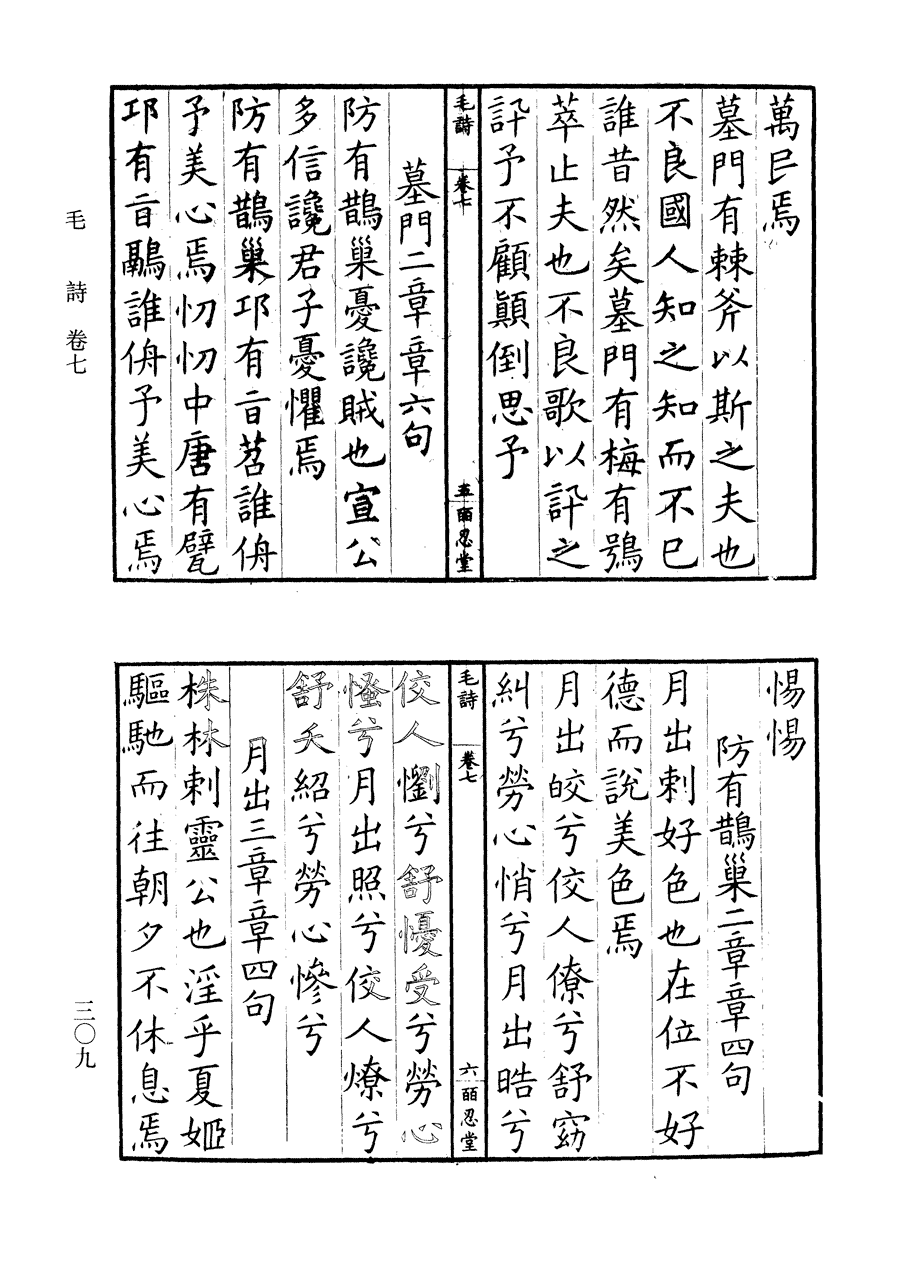 萬民焉
墓門有棘斧以斯之夫也
不良國人知之知而不已
誰昔然矣墓門有梅有鴞
萃止夫也不良歌以訊之
訊予不顧顛倒思予
毛詩 卷七 五 皕忍堂
墓門二章章六句
防有鵲巢憂讒賊也宣公
多信讒君子憂懼焉
防有鵲巢邛有旨苕誰侜
予美心焉忉忉中唐有甓
邛有旨鷊誰侜予美心焉
惕惕
防有鵲巢二章章四句
月出刺好色也在位不好
德而說美色焉
月出皎兮佼人僚兮舒窈
糾兮勞心悄兮月出晧兮
毛詩 卷七 六 皕忍堂
佼人懰兮舒懮受兮勞心
慅兮月出照兮佼人燎兮
舒夭紹兮勞心慘兮
月出三章章四句
株林刺靈公也淫乎夏姬
驅馳而往朝夕不休息焉
毛詩 卷七
三〇九